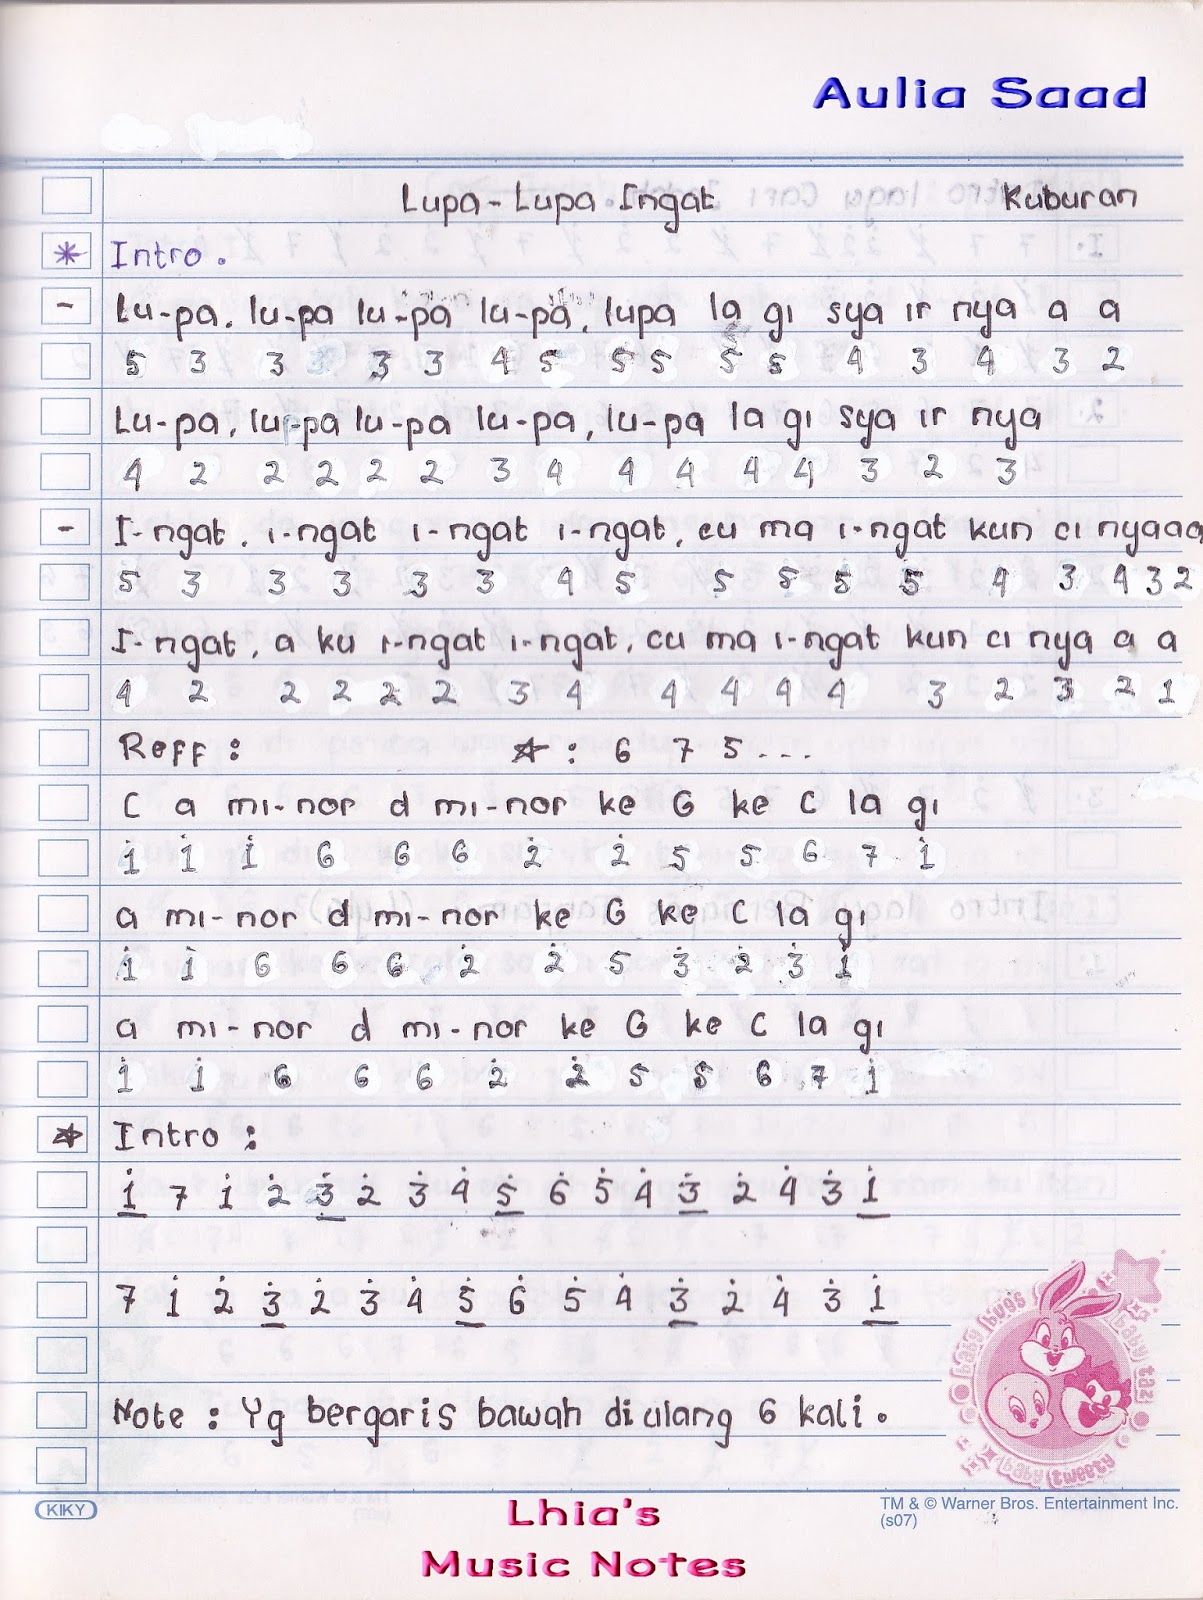 Aulia Saad
Lupa-Lupa Ingat Kuburan
* Intro.
- Lu-pa, lu-pa lu-pa lu-pa, lupa la gi sya ir nya a a
5 3 3 3 3 3 4 5 5 5 5 5 4 3 4 3 2
Lu-pa, lu-pa lu-pa lu-pa, lu-pa la gi sya ir nya
4 2 2 2 2 2 3 4 4 4 4 4 3 2 3
- I-ngat, i-ngat i-ngat i-ngat, cu ma i-ngat kun ci nyaaa
5 3 3 3 3 3 4 5 5 5 5 5 4 3 4 3 2
I-ngat, a ku i-ngat i-ngat, cu ma i-ngat kun ci nya a a
4 2 2 2 2 2 3 4 4 4 4 4 3 2 3 2 1
Reff : ☆ : 6 7 5...
C a mi-nor d mi-nor ke G ke C la gi
i̇ i̇ i̇ 6 6 6 2̇ 2̇ 5 5 6 7 i̇
a mi-nor d mi-nor ke G ke C la gi
i̇ i̇ 6 6 6 2̇ 2̇ 5 3̇ 2̇ 3̇ i̇
a mi-nor d mi-nor ke G ke C la gi
i̇ i̇ 6 6 6 2̇ 2̇ 5 5 6 7 i̇
☆ Intro :
1̇ 7 1̇ 2̇ 3̇ 2̇ 3̇ 4̇ 5̇ 6̇ 5̇ 4̇ 3̇ 2̇ 4̇ 3̇ 1̇
7 1̇ 2̇ 3̇ 2̇ 3̇ 4̇ 5̇ 6̇ 5̇ 4̇ 3̇ 2̇ 4̇ 3̇ 1̇
Note : Yg bergaris bawah diulang 6 kali.
baby bugs baby taz baby tweety
KIKY
TM & © Warner Bros. Entertainment Inc.
(s07)
Lhia's
Music Notes